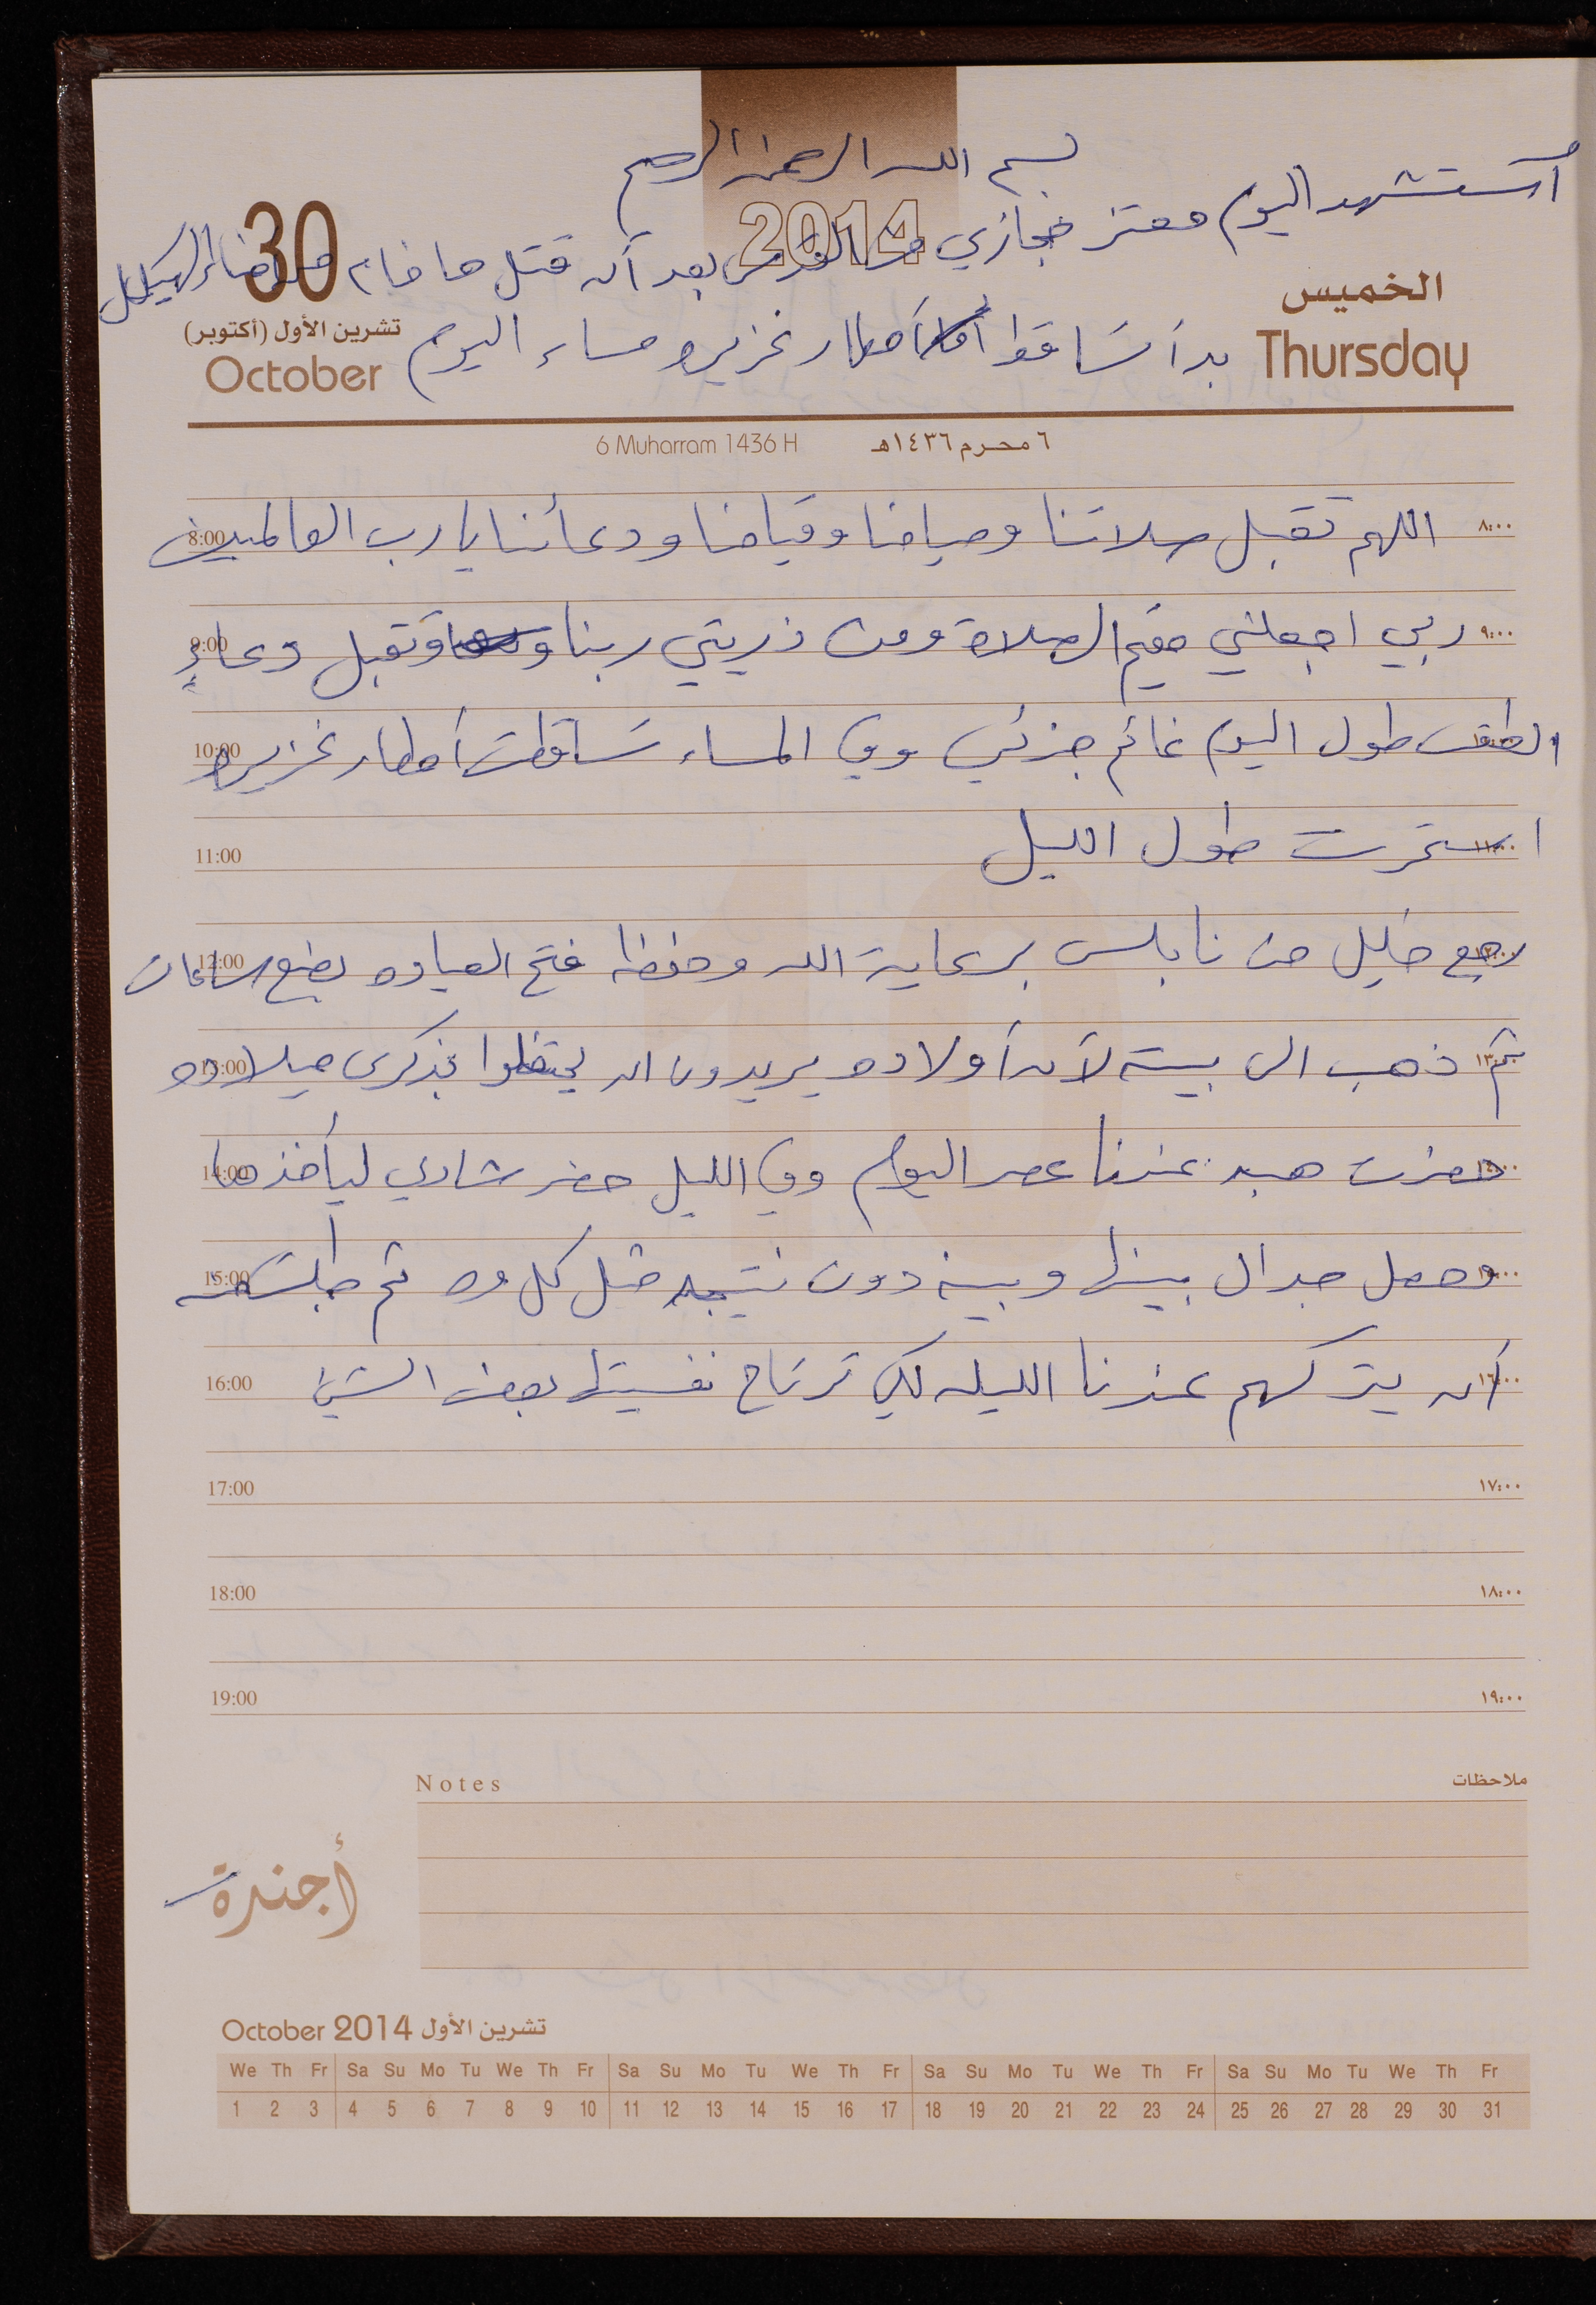 بسم الله الرحمن الرحيم
أستشهد اليوم معتز حجازي من القدس بعد أن قتل حاخام من أمناء الهيكل
2014
30
الخميس
تشرين الأول (أكتوبر)
بدأ تساقوا أمطار غزيره مساء اليوم
Thursday
October
6 Muharram 1436 H ٦ محرم ١٤٣٦هـ
8:00 اللهم تقبل صلاتنا وصيامنا وقيامنا ودعائنا يا رب العالمين ٨:٠٠
9:00 ربي اجعلني مقيم الصلاة ومن ذريتي ربنا وتقبل دعاءِ ٩:٠٠
10:00 الطقس طول اليوم غائم جزئي وفي المساء تساقطت أمطار غزيره ١٠:٠٠
11:00 استمرت طول الليل ١١:٠٠
12:00 رجع خليل من نابلس برعاية الله وحفظه فتح العياده بضع ساعات ١٢:٠٠
13:00 ثم ذهب الى بيته لأن أولاده يريدون ان يحتفلوا بذكرى ميلاده ١٣:٠٠
14:00 حضرت هبه عندنا عصر اليوم وفي الليل حضر شادي ليأخذها ١٤:٠٠
15:00 وحصل جدال بينها وبينه دون نتيجه مثل كل مره ثم طلبت منه ١٥:٠٠
16:00 أن يتركهم عندنا الليله لكي ترتاح نفسيتها بعض الشيئ ١٦:٠٠
17:00 ١٧:٠٠
18:00 ١٨:٠٠
19:00 ١٩:٠٠
Notes ملاحظات
أجندة
October 2014 تشرين الأول
We Th Fr Sa Su Mo Tu We Th Fr Sa Su Mo Tu We Th Fr Sa Su Mo Tu We Th Fr Sa Su Mo Tu We Th Fr
1 2 3 4 5 6 7 8 9 10 11 12 13 14 15 16 17 18 19 20 21 22 23 24 25 26 27 28 29 30 31